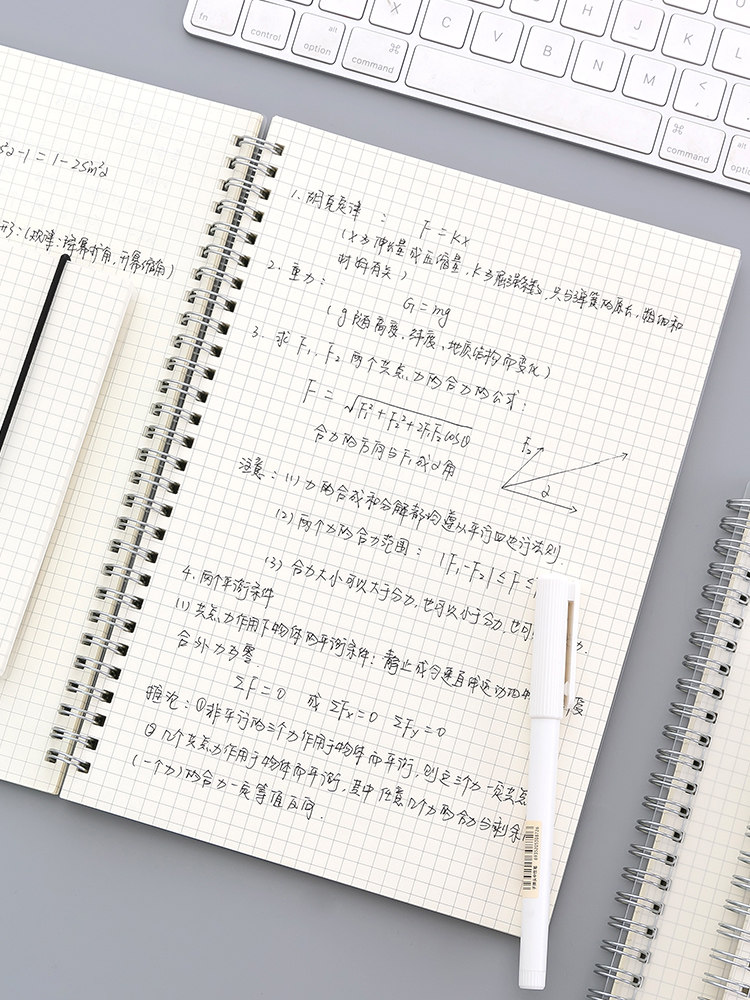 fn
control
alt
option
⌘
command
X
C
V
B
N
M
H
J
K
L
<
,
⌘
command
alt
opt
²α-1=1-2Sin²α
形:(规律:降幂扩角,升幂缩角)
1. 胡克定律: F=Kx
(x为伸长量或压缩量,K为屈强系数,只与弹簧的原长,粗细和
材料有关)
2. 重力: G=mg
(g随高度、纬度、地质结构而变化)
3. 求F₁,F₂两个共点力的合力的公式:
F=√F₁²+F₂²+2F₁F₂cosθ
合力的方向与F₁成α角
F₂
α
注意:(1)力的合成和分解都均遵从平行四边行法则
(2)两个力的合力范围: |F₁-F₂|≤F≤
(3)合力大小可以大于分力,也可以小于分力,也可 力.
4. 两个平衡条件
(1)共点力作用下物体的平衡条件:静止或匀速直线运动的
合外力为零.
ΣF=0 或ΣFx=0 ΣFy=0
推论:①非平行的三个力作用于物体而平衡,则这三个力一定共点
②几个共点力作用于物体而平衡,其中任意几个力的合力与剩余
(一个力)的合力一定等值反向.